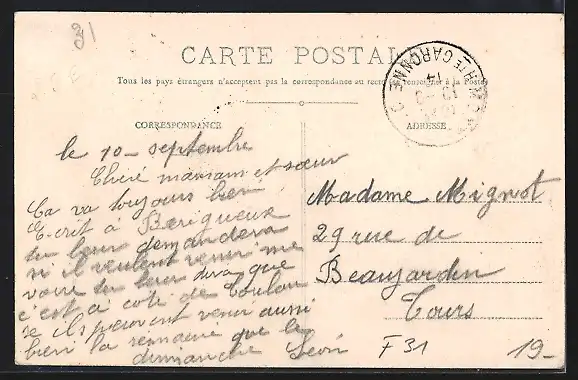 31
CARTE POSTALE
Tous les pays étrangers n'acceptent pas la correspondance au recto (se renseigner à la Poste)
CORRESPONDANCE
ADRESSE
Hte GARONNE
le 10 - septembre
Chéré maman et sœur
Ça va toujours bien
Ecrit à Périgueux
tu leur demandera
si il veulent venir me
voire tu leur dira que
c'est à coté de Toulou
se ils peuvent venir aussi
bien la semaine que le
dimanche Léon
Madame Mignot
29 rue de
Beaujardin
Tours
F31
19-